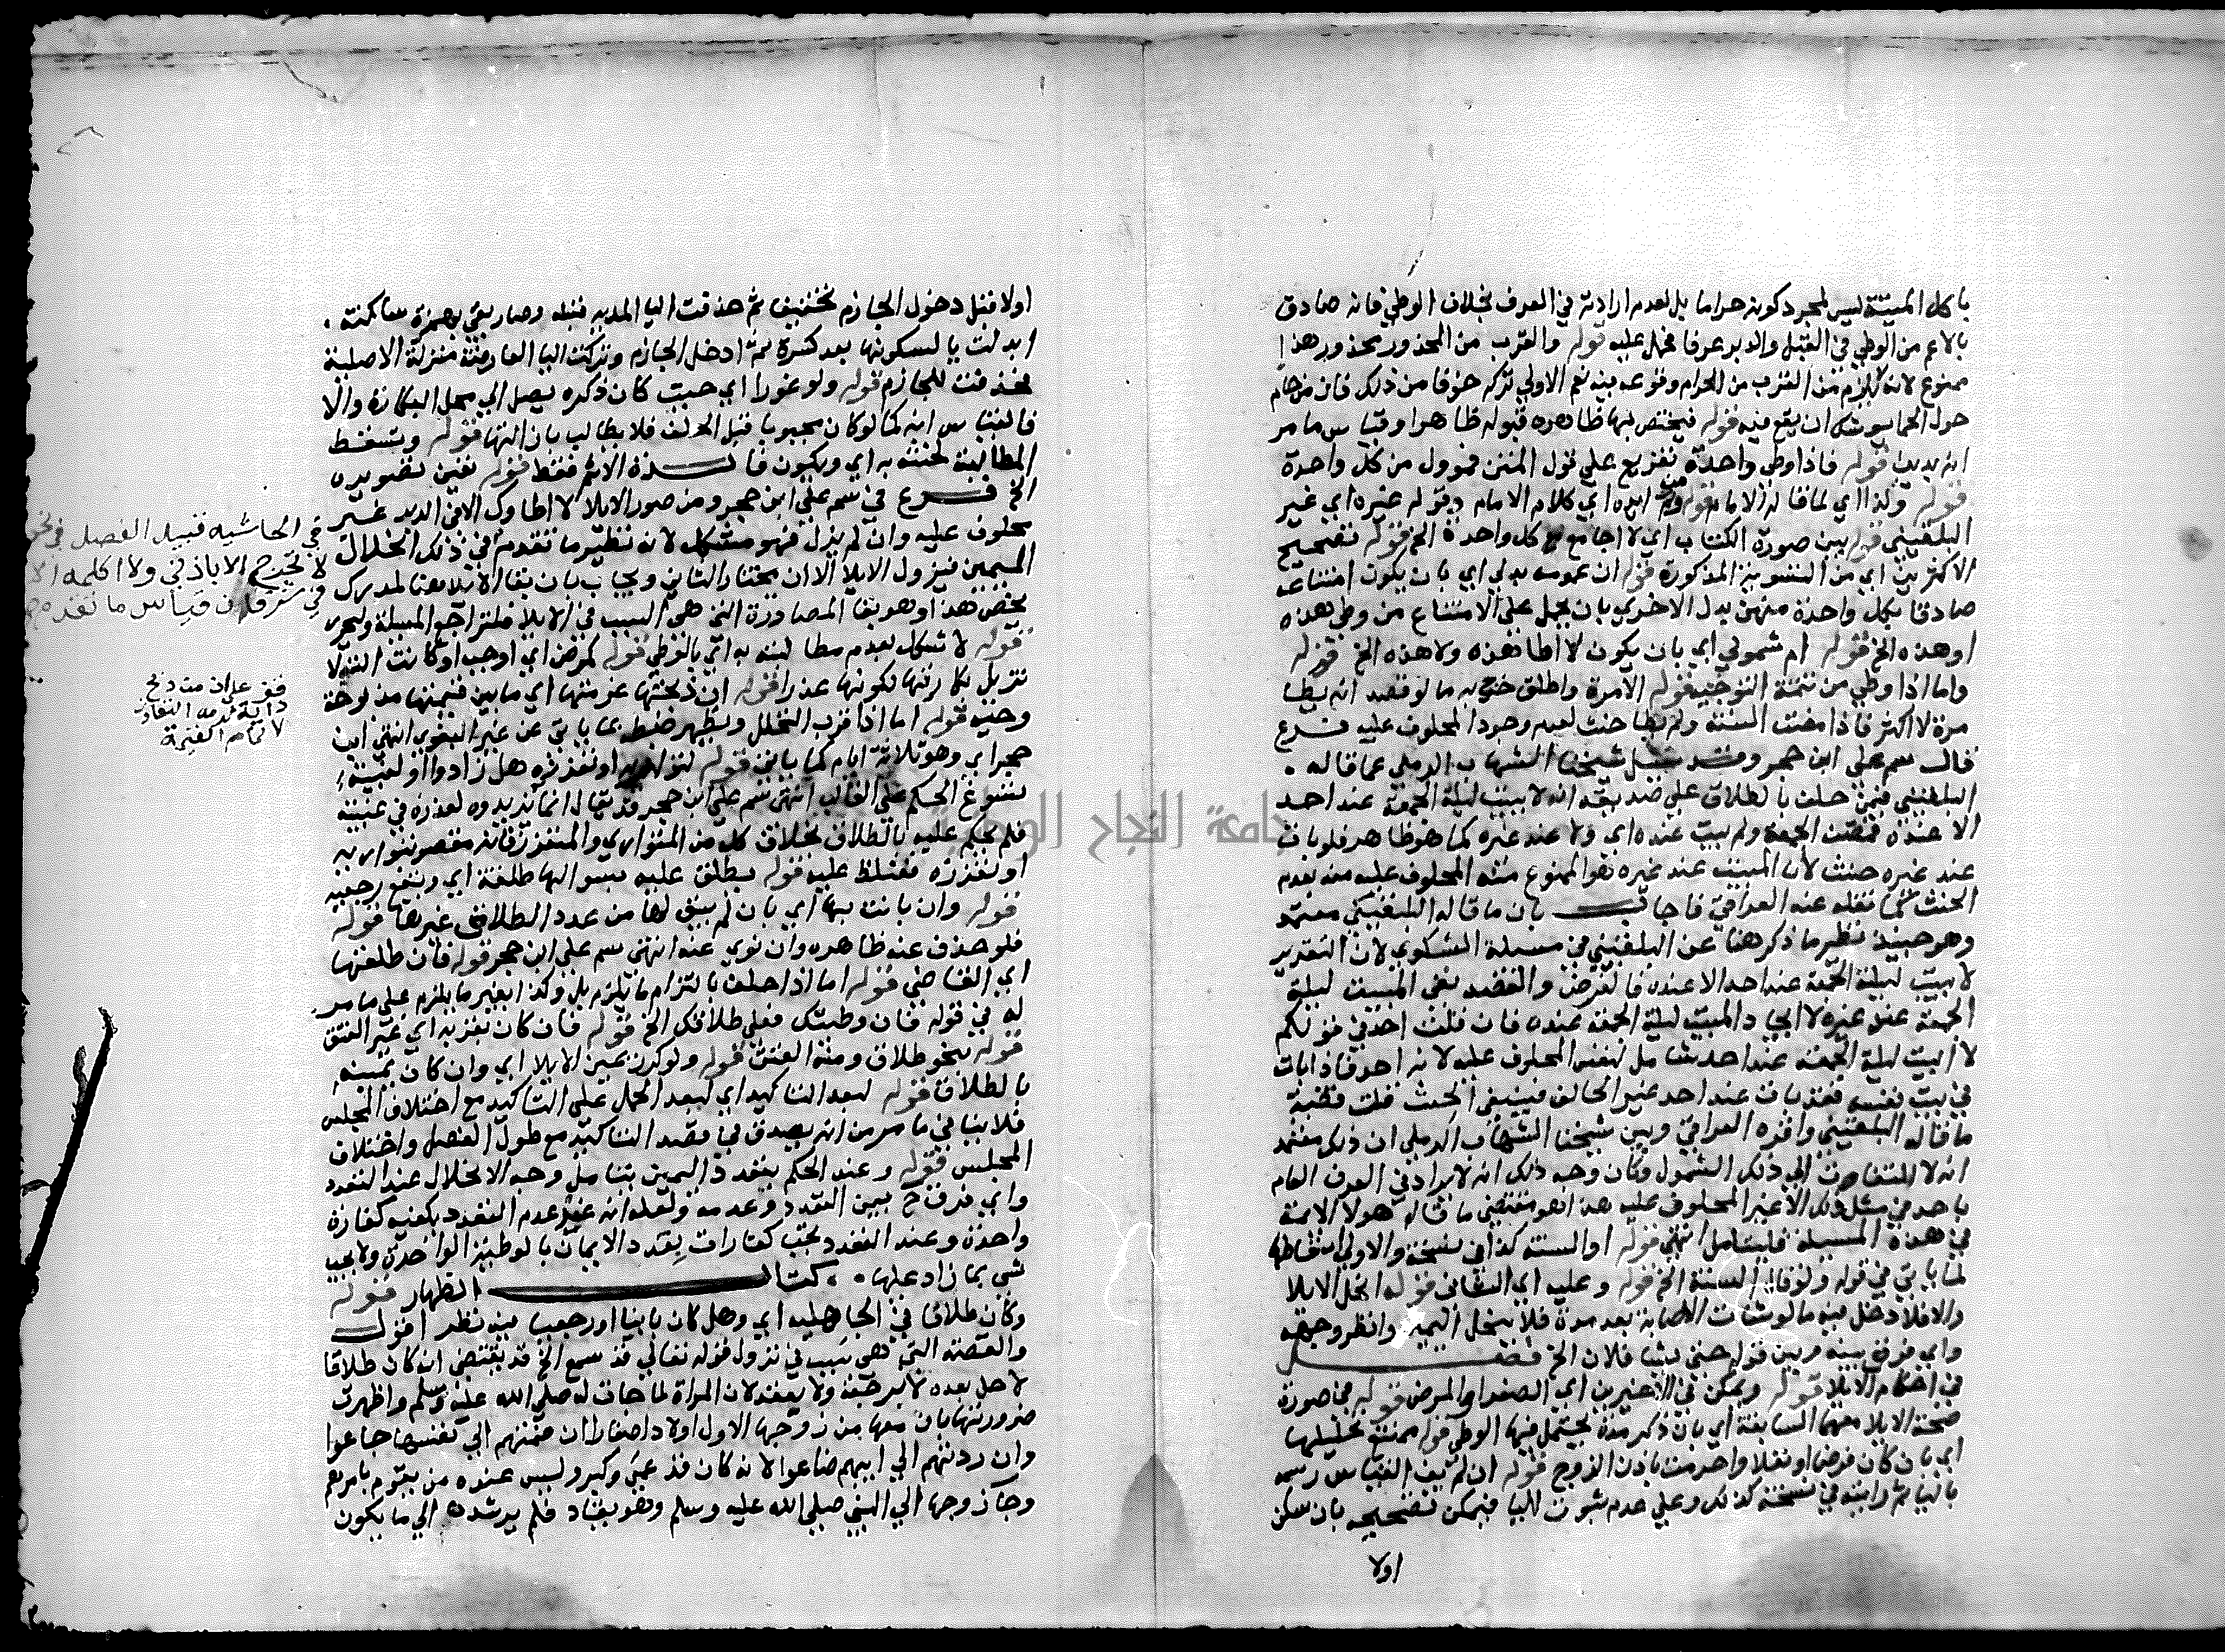 باكل الميتة ليس لمجرد كونه حراما بل لعدم ارادته في العرف بخلاف الوطي فانه صادق
بالاعم من الوطي في القبل والدبر عرفا فحمل عليه قوله والقرب من المحذور محذور هذا
ممنوع لانه لا يلزم من القرب من الحرام وقوعه فيه نعم الاولي تركه خوفا من ذلك فان من حام
حول الحما يوشك ان يقع فيه قوله فيختص بها ظاهره قبوله ظاهرا وقياس ما مر
انه يدين قوله فاذا وطي واحدة تفريع علي قول المتن فمول من كل واحدة
قوله ولذا اي لما قاله الامام قوله ومن ايده اي كلام الامام وقوله غيره اي غير
البلقيني قوله بين صورة الكتاب اي لا اجامع كل واحدة الخ قوله تصحيح
الاكثرين اي من التسوية المذكورة قوله ان عمومه بدلي اي بان يكون امتناعه
صادقا بكل واحدة منهن بدل الاخري بان يحمل علي الامتناع من وطي هذه
او هذه الخ قوله ام شمولي اي بان يكون لا اطا هذه ولا هذه الخ قوله
واما اذا وطي من تتمة التوجيه قوله الامرة واطلق خرج به ما لو قصد انه يطا
مرة لا اكثر فاذا مضت السنة ولم يطا حنث لعدم وجود المحلوف عليه فرع
قال سم علي ابن حجر وقد سئل شيخنا الشهاب الرملي عما قاله
البلقيني فيمن حلف بالطلاق علي صديقه انه لا يبيت ليلة الجمعة عند احد
الا عنده فمضت الجمعة ولم يبت عنده اي ولا عند غيره كما هو ظاهر فلو بات
عند غيره حنث لان المبيت عند غيره هو الممنوع منه المحلوف عليه من عدم
الحنث كما نقله عنه العراقي فاجاب بان ما قاله البلقيني معتمد
وهو حينئذ نظير ما ذكر هنا عن البلقيني في مسئلة الشكوي لان التقدير
لا يبيت ليلة الجمعة عند احد الا عنده فالغرض والقصد نفي المبيت ليلة
الجمعة عند غيره لا ايجاد المبيت ليلة الجمعة عنده فان قلت احد في قولكم
لا ابيت ليلة الجمعة عند احد شامل لنفس المحلوف عليه لانه احد فاذا بات
في بيت نفسه فقد بات عند احد غير الحالف فينبغي الحنث قلت قضية
ما قاله البلقيني واقره العراقي وبين شيخنا الشهاب الرملي ان ذلك معتمد
انه لا التفات الي ذلك الشمول وكان وجه ذلك انه لا يراد في العرف العام
باحد في مثل ذلك الا غير المحلوف عليه هذا هو مقتضي ما قاله هولا الايمة
في هذه المسيلة فليتامل انتهي قوله او السنة كذا في نسخة والاولي اسقاطها
لما ياتي في قوله ولو قال السنة الخ قوله وعليه اي الثاني قوله انحل الايلا
والا فلا دخل فيه ما لو شات الاصابة بعد مدة فلا ينحل اليمين وانظر وجهه
واي فرق بينه وبين قوله حتي يشا فلان الخ فصل
في احكام الايلا قوله ويمكن في الاخيرين اي الصغر او المرض قوله في صورة
صحة الايلا معها السابقة اي بان ذكر مدة يحتمل فيها الوطي قوله ممتنع تحليلها
اي بان كان فرضا او نفلا واحرمت باذن الزوج قوله ان لم يف القياس رسمه
باليا ثم رايته في نسخة كذلك وعلي عدم ثبوت اليا فيمكن تصحيحه بان سكن
اولا
اولا قبل دخول الجازم تخفيفا ثم حذفت اليا المدية قبله وصار يفئ بهمزة ساكنة
ابدلت يا لسكونها بعد كسرة ثم ادخل الجازم وتركت اليا العارضة منزلة الاصلية
فحذفت للجازم قوله ولو غورا اي حيث كان ذكره يصل الي محل البكارة والا
فالقياس انه كما لو كان مجبوبا قبل الحلف فلا يطالب بان انتها قوله وتسقط
المطالبة لحنثه به اي ويكون فايدة الاثم فقط قوله تعين تصويره
الخ فرع في سم علي ابن حجر ومن صور الايلا لا اطاوك الا في الدبر غير
محلوف عليه وان لم يزل فهو مشكل لانه نظير ما تقدم في ذلك انحلال
اليمين فيزول الايلا الا ان يختار الثاني ويجاب بان بقا الايلا هنا لمدرك
يخص هذا وهو بقا المصادرة التي هي السبب في الايلا فلتراجع المسيلة وليحرر
قوله لا تشكل بعدم مطالبته به اي بالوطي قوله كمرض اي اوجب او كانت
وحينه قوله اما اذا قرب التحلل ويظهر ضبطه بما ياتي عن غير البغوي انتهي ابن
حجر اي وهو ثلاثة ايام كما ياتي قوله لتواريه او تعززه هل زادوا او لغيبته
بتسوغ الحكم علي الغايب انتهي سم علي ابن حجر قد يقال انما لم يزيدوه لعذره في غيبته
فلم يحكم عليه بالطلاق بخلاف كل من المتواري والمتعزز فانه مقصر بتواريه
او تعززه فغلظ عليه قوله يطلق عليه بسوالها طلقة اي وتقع رجعية
قوله وان بانت بها اي بان لم يبق لها من عدد الطلاق غيرها قوله
فلو حذف عنه ظاهره وان نوي عنه انتهي سم علي ابن حجر قوله فان طلقتها
اي القاضي قوله اما اذا حلف بالتزام ما يلزم بل وكذا بغير ما يلزم علي ما مر
له في قوله فان وطئتك فعلي طلاقك الخ قوله فان كان بقربة اي غير العتق
قوله بنحو طلاق ومنه العتق قوله ولو كرر يمين الايلا اي وان كان يمينه
بالطلاق قوله لبعد التاكيد اي لبعد الحمل علي التاكيد مع اختلاف المجلس
فلا ينافي ما مر من انه يصدق في قصد التاكيد مع طول الفصل واختلاف
المجلس قوله وعند الحكم بتعدد اليمين يتامل وجه الانحلال عند التعدد
واي فرق ح بين التعدد وعدمه ولعله انه عند عدم التعدد يكفيه كفارة
واحدة وعند التعدد تجب كفارات بعدد الايمان بالوطية الواحدة ولا يجب
شي بما زاد عليها كتاب الظهار قوله
وكان طلاقا في الجاهلية اي وهل كان باينا او رجعيا فيه نظر اقول
والقصة التي هي سبب في نزول قوله تعالي قد سمع الخ قد يقتضي انه كان طلاقا
لا حل بعده لا برجعة ولا بعقد لان المراة لما جات له صلي الله عليه وسلم واظهرت
ضرورتها بان معها من زوجها الاول اولاد صغارا ان ضمتهم الي نفسها جاعوا
وان ردتهم الي ابيهم ضاعوا لانه كان قد عمي وكبر وليس عنده من يقوم بامرهم
وجا زوجها الي النبي صلي الله عليه وسلم وهو يقاد فلم يرشده الي ما يكون
في الحاشيه قبيل الفصل
لا تخرجي الا باذني ولا اكلمه الا
في قياس ما تقدم
جامعة النجاح الوطنية